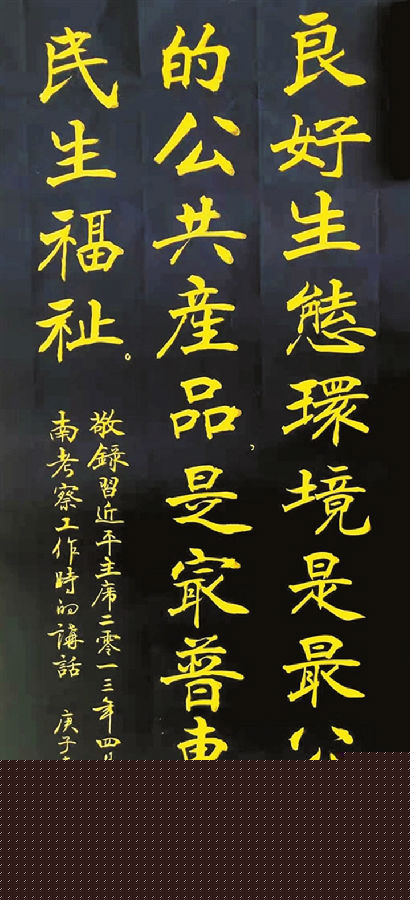 良好生態環境是最公
的公共産品，是冣普
民生福祉。
敬錄習近平主席二零一三年四月
南考察工作時的講話 庚子